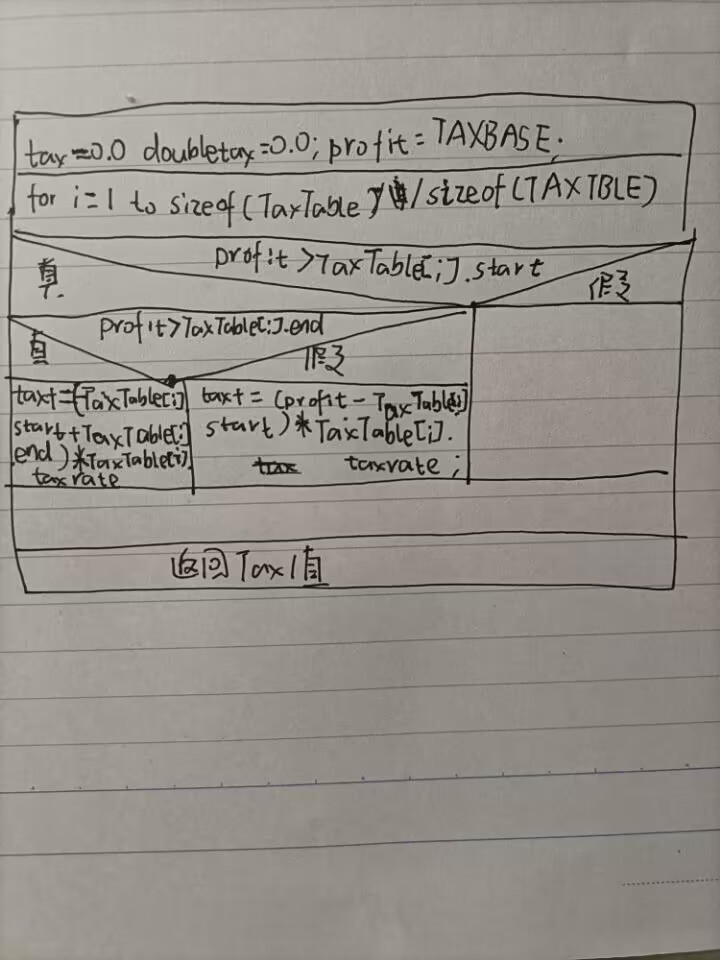 tax=0.0 doubletax=0.0; profit=TAXBASE.
for i=1 to sizeof(TaxTable)/sizeof(TAXTBLE)
profit>TaxTable[i].start
真 假
profit>TaxTable[i].end
真 假
taxt=(TaxTable[i]
start+TaxTable[i]
end)*TaxTable[i].
taxrate
taxt=(profit-TaxTable[i]
start)*TaxTable[i].
taxrate;
返回Tax值